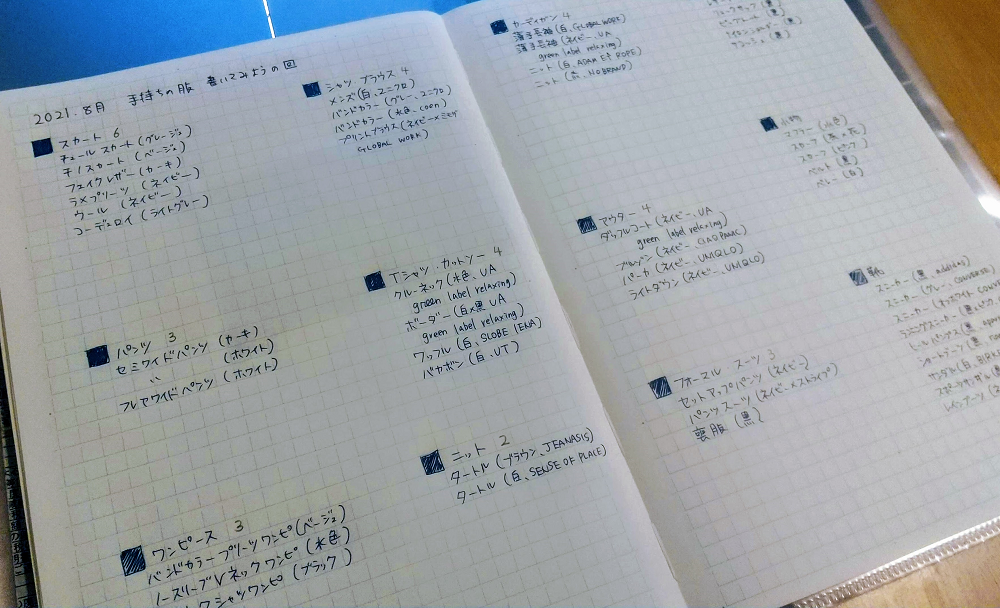 2021.8月 手持ちの服 書いてみようの回
スカート 6
チュールスカート(グレージュ)
チノスカート(ベージュ)
フェイクレザー(カーキ)
ラメプリーツ(ネイビー)
ウール(ネイビー)
コーデュロイ(ライトグレー)
パンツ 3
セミワイドパンツ(カーキ)
〃(ホワイト)
フレアワイドパンツ(ホワイト)
ワンピース 3
バンドカラープリーツワンピ(ベージュ)
ノースリーブVネックワンピ(水色)
シャツワンピ(ブラック)
シャツ ブラウス 4
メンズ(白、ユニクロ)
バンドカラー(グレー、ユニクロ)
バンドカラー(水色、coen)
プリントブラウス(ネイビー×
GLOBAL WORK)
Tシャツ・カットソー 4
クルーネック(水色、UA
green label relaxing)
ボーダー(白×黒 UA
green label relaxing)
ワッフル(白、SLOBE IENA)
バカボン(白、UT)
ニット 2
タートル(ブラウン、JEANASIS)
タートル(白、SENSE OF PLACE)
カーディガン 4
薄手長袖(白、GLOBAL WORK)
薄手長袖(ネイビー、UA
green label relaxing)
ニット(白、ADAM ET ROPE)
ニット(、NOBRAND)
アウター 4
ダッフルコート(ネイビー、UA
green label relaxing)
ブルゾン(ネイビー、CIAOPANIC)
パーカ(ネイビー、UNIQLO)
ライトダウン(ネイビー、UNIQLO)
フォーマル スーツ 3
セットアップパンツ(ネイビー)
パンツスーツ(ネイビー×ストライプ)
喪服(黒)
小物
マフラー(水色)
スカーフ(
スカーフ(ピンク)
ベルト(黒)
ベレー(白)
靴
スニーカー(黒、adidas)
スニーカー(グレー、CONVERSE)
スニーカー(オフホワイト
ランニングスニーカー(
ヒールパンプス(黒、
ショートブーツ(黒、
サンダル(白、BIR
スポーツサンダル(黒
レインブーツ(